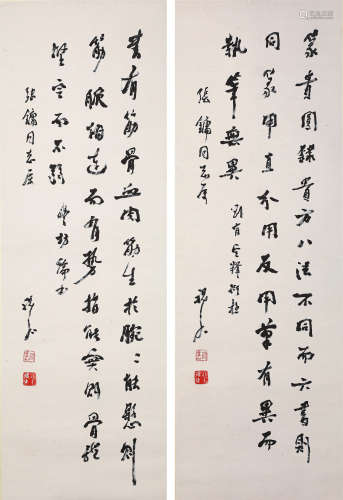 篆貴圓隸貴方八法不同而六書則
同篆用直分用反用筆有異而
執筆無異
劉有定釋衍極
張鏞同志屬
書有筋骨血肉筋生於腕〻能懸則
筋脈相連而有勢指能實則骨體
堅定而不弱
豐坊論書
張鏞同志屬